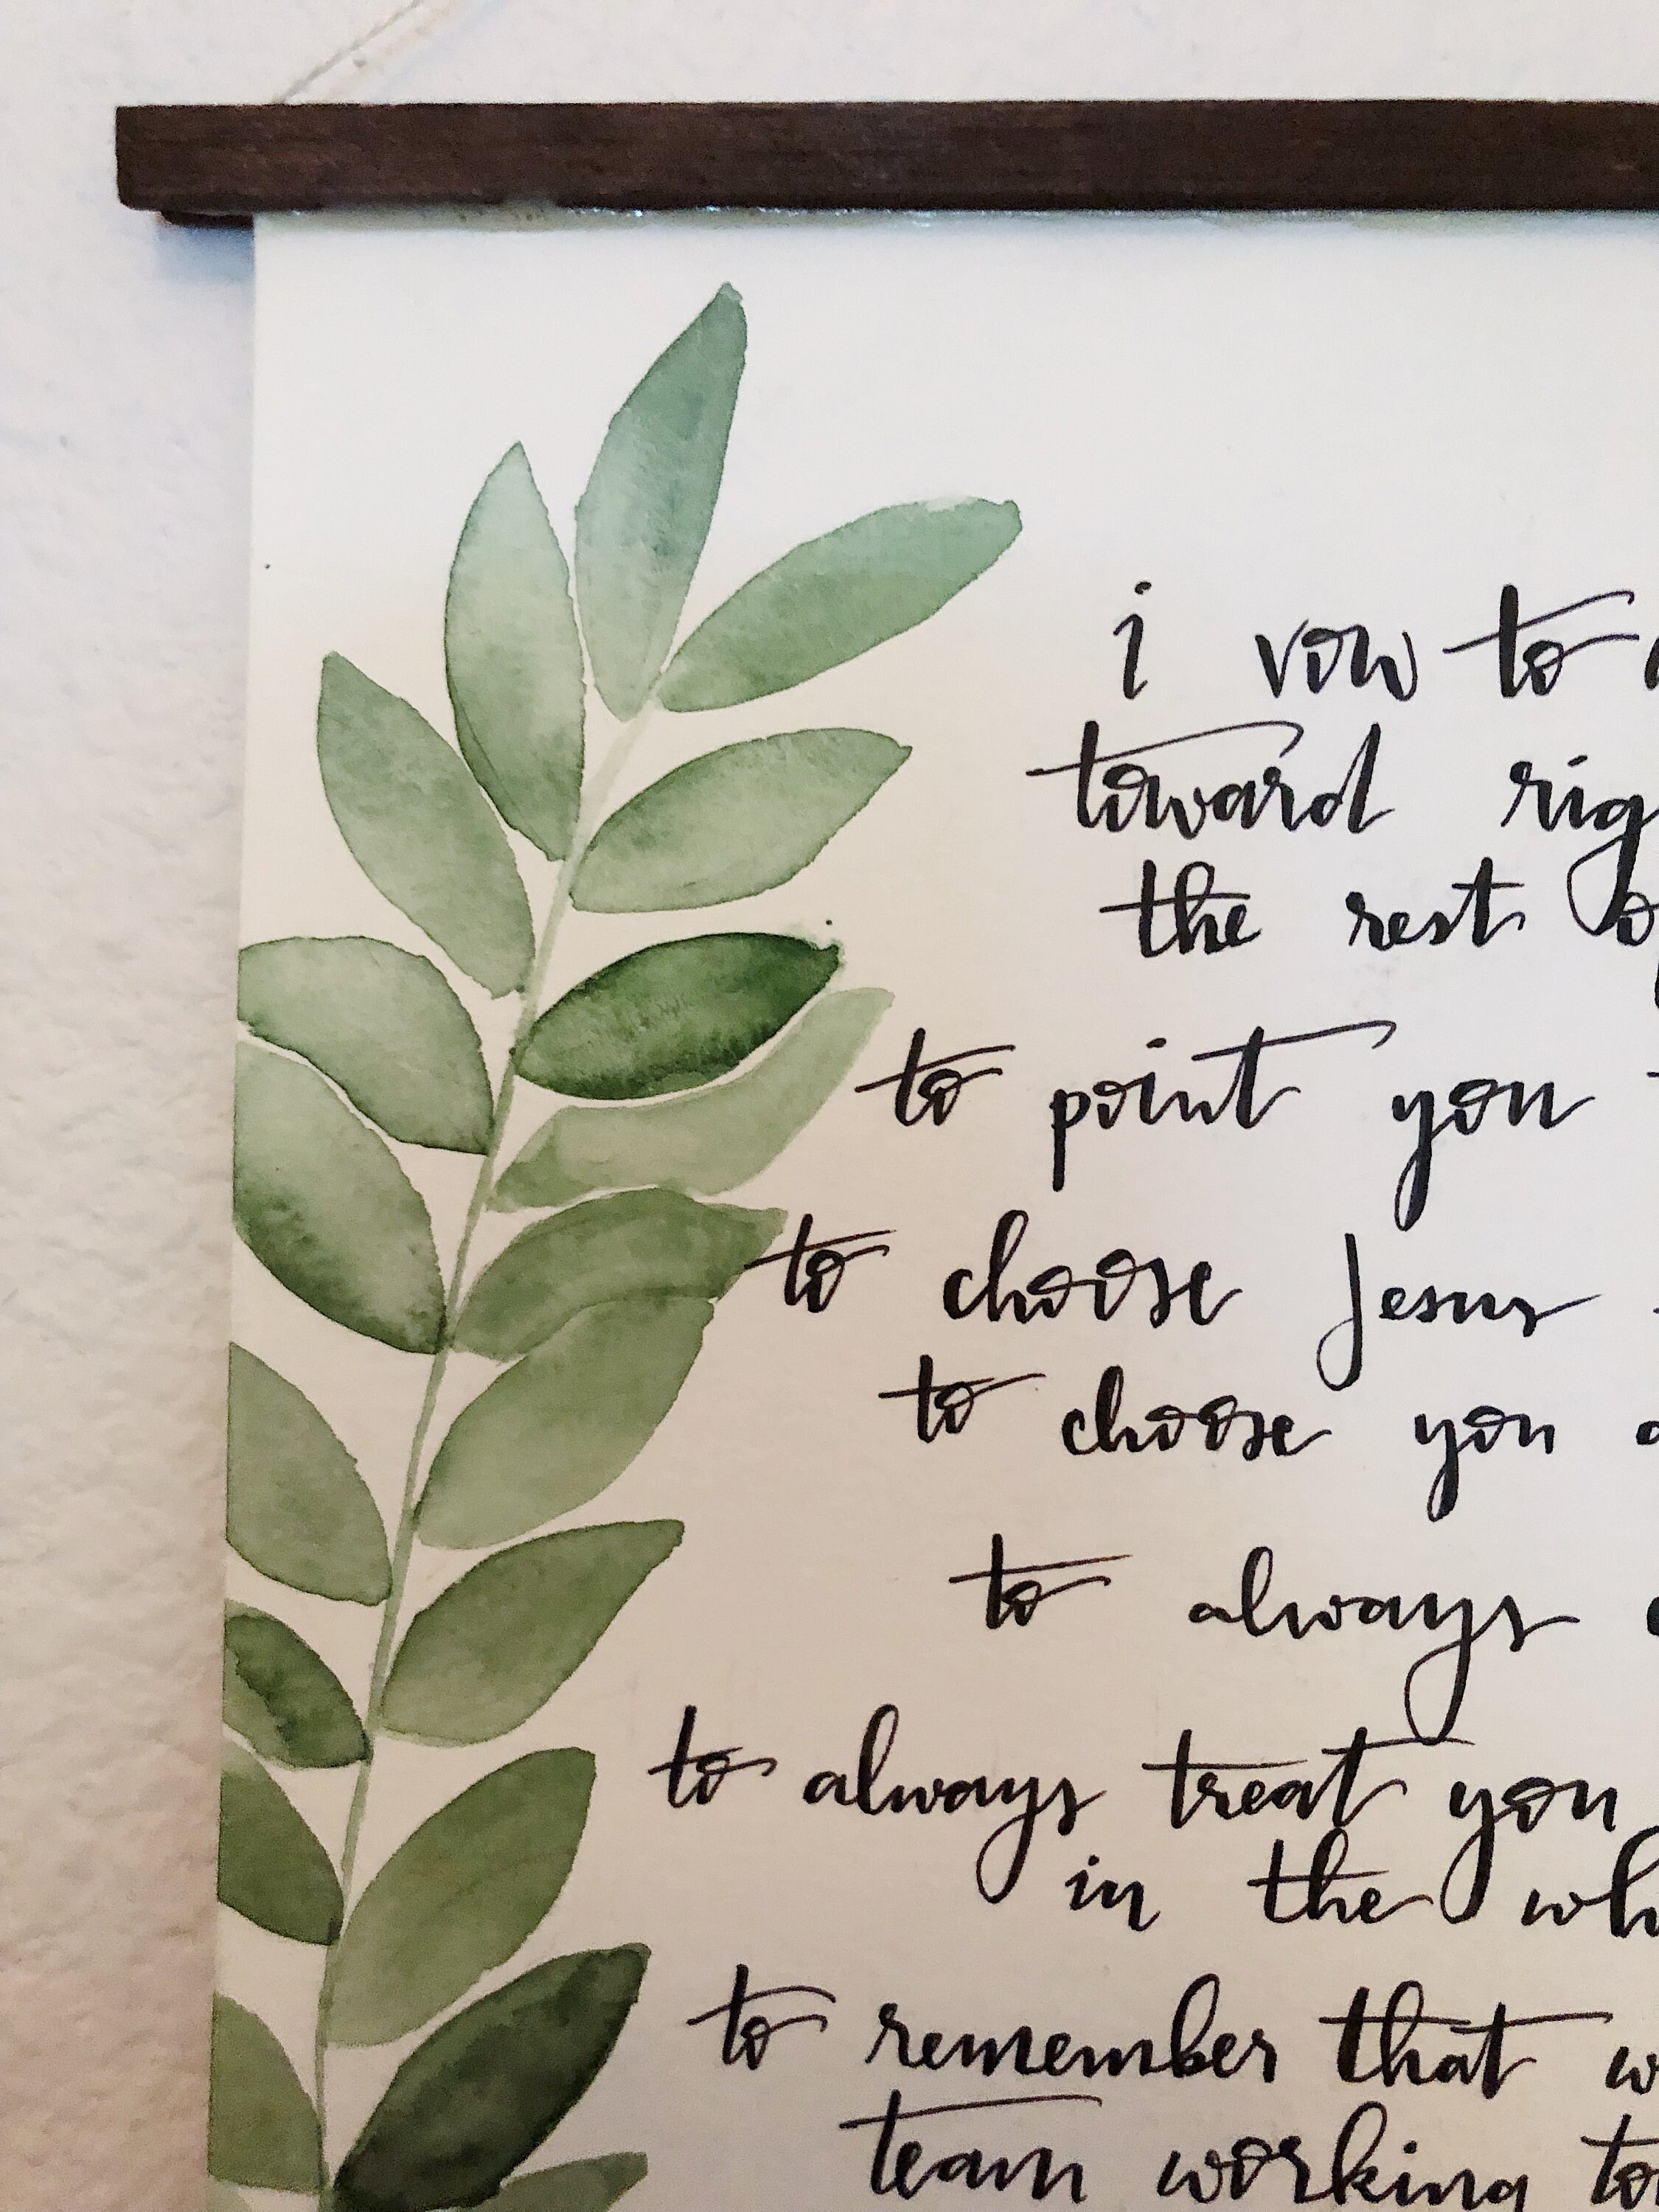 i vow to
toward rig
the rest o
to point you
to choose Jesus
to choose you
to always
to always treat you
in the wh
to remember that w
team working to